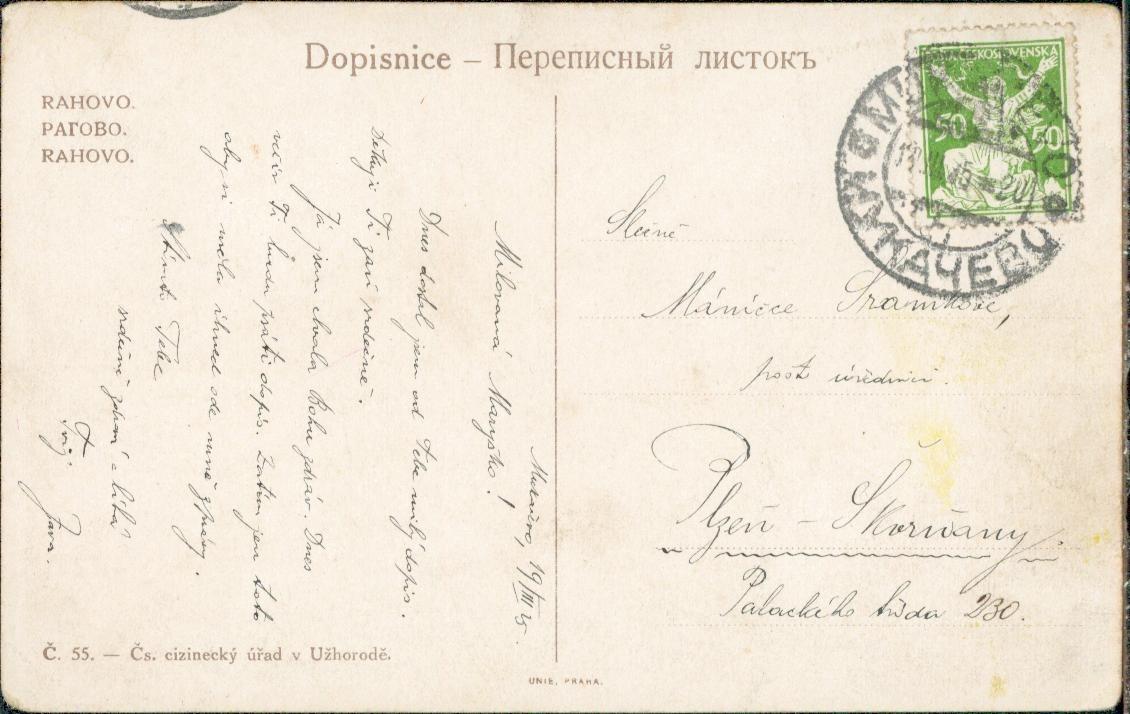 Dopisnice – Переписный листокъ
RAHOVO.
РАГОВО.
RAHOVO.
Mukačevo, 19/III 25.
Milovaná Marysko!
Dnes dostal jsem od Tebe milý dopis.
Děkuji Ti zaň srdečně.
Já jsem chvála Bohu zdráv. Dnes
večer Ti budu psáti dopis. Zatím jen toto
abys měla ihned ode mně zprávy.
Tebe
srdečně zdraví a líbá
Tvůj Jára.
Č. 55. — Čs. cizinecký úřad v Užhorodě.
UNIE, PRAHA.
ČESKOSLOVENSKÁ
50 50
МУКАЧЕВО
Slečně
Mánince Šramkové,
post úřednici.
Plzeň – Skorňany.
Palackého třída 230.